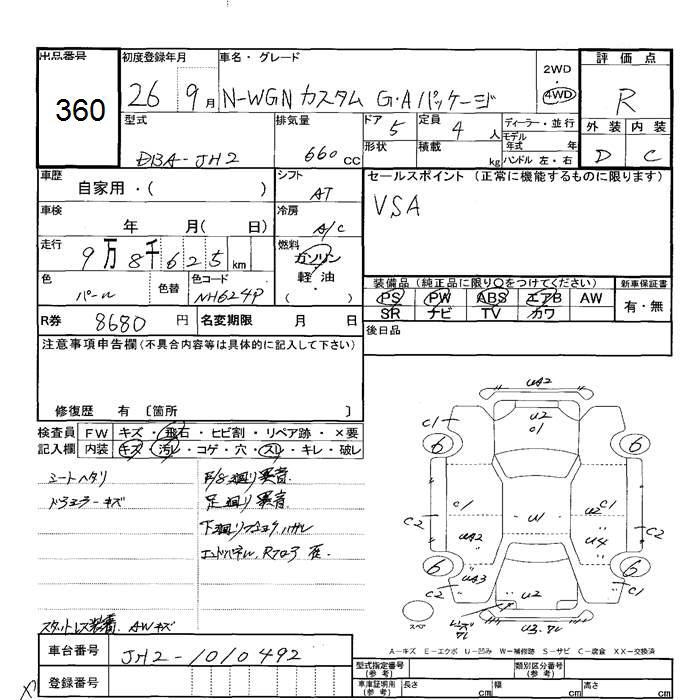 出品番号 初度登録年月 車名・グレード 評価点
360
26 9月 N-WGN カスタム G・Aパッケージ 2WD ・ 4WD R
型式 排気量 ドア 5 定員 4人 ディーラー・並行 外装 内装
DBA-JH2 660cc 形状 積載 kg モデル年式 年 ハンドル 左・右 D C
車歴 自家用・( ) シフト AT セールスポイント (正常に機能するものに限ります)
車検 年 月( 日) 冷房 A/C VSA
走行 9万8千625km 燃料 ガソリン 軽油 ( )
色 パール 色替 色コード NH624P 装備品 (純正品に限り○をつけてください) 新車保証書
PS PW ABS エアB AW 有・無
SR ナビ TV カワ
R券 8680円 名変期限 月 日 後日品
注意事項申告欄(不具合内容等は具体的に記入して下さい)
修復歴 有 〔箇所 〕
検査員 FW キズ・飛石・ヒビ割・リペア跡・×要
記入欄 内装 キズ・汚レ・コゲ・穴・スレ・キレ・破レ
シートヘタリ
F/8廻り異音
足廻り異音
スタットレス装着. AWキズ
UA2
U2
C1
C1
6 6
C1 U2 C1
C2 UA2 U1 U4 C2
6 6
UA3
C2 U2 C1
スペア
U3.
A-キズ E-エクボ U-凹み W-補修跡 S-サビ C-腐食 XX-交換済
車台番号 JH2-1010492
登録番号
型式指定番号(参考) 類別区分番号(参考)
車庫証明用(参考) 長さ cm 幅 cm 高さ cm